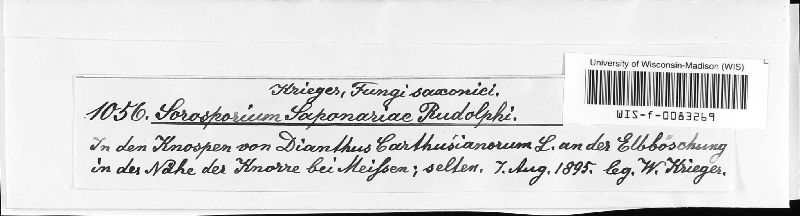 Krieger, Fungi saxonici.
University of Wisconsin-Madison (WIS)
WIS-f-0083269
1056. Sorosporium Saponariae Rudolphi.
In den Knospen von Dianthus Carthusianorum L. an der Elbböschung
in der Nähe der Knorre bei Meißen; selten. 7. Aug. 1895. leg. W. Krieger.